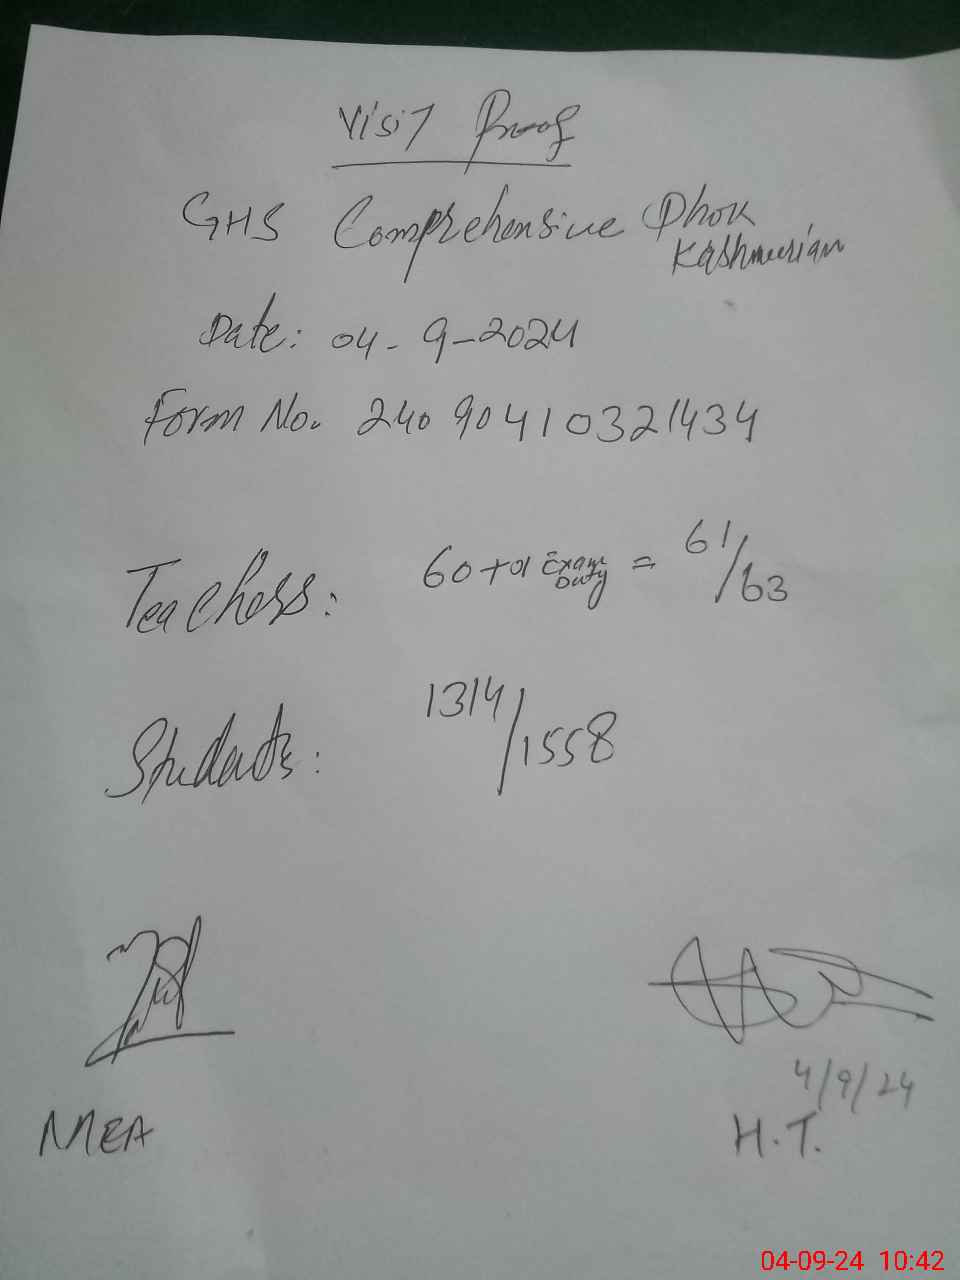 Visit Proof
GHS Comprehensive Dhok
Kashmirian
Date: 04-9-2024
Form No. 24090410321434
Teachers: 60+01 Exam Duty = 61/63
Students: 1314/1558
4/9/24
MEA
H.T.
04-09-24 10:42